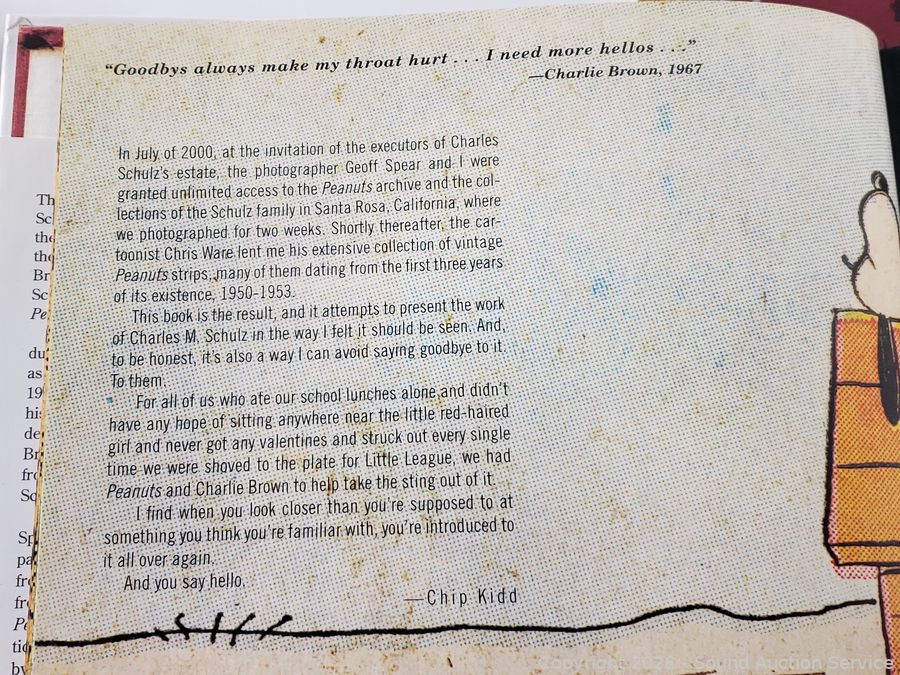 “Goodbys always make my throat hurt . . . I need more hellos . . .”
—Charlie Brown, 1967
In July of 2000, at the invitation of the executors of Charles
Schulz’s estate, the photographer Geoff Spear and I were
granted unlimited access to the Peanuts archive and the col-
lections of the Schulz family in Santa Rosa, California, where
we photographed for two weeks. Shortly thereafter, the car-
toonist Chris Ware lent me his extensive collection of vintage
Peanuts strips, many of them dating from the first three years
of its existence, 1950-1953.
This book is the result, and it attempts to present the work
of Charles M. Schulz in the way I felt it should be seen. And,
to be honest, it’s also a way I can avoid saying goodbye to it.
To them.
For all of us who ate our school lunches alone and didn’t
have any hope of sitting anywhere near the little red-haired
girl and never got any valentines and struck out every single
time we were shoved to the plate for Little League, we had
Peanuts and Charlie Brown to help take the sting out of it.
I find when you look closer than you’re supposed to at
something you think you’re familiar with, you’re introduced to
it all over again.
And you say hello.
—Chip Kidd
Th
Sc
the
the
Br
Sc
Pe
du
as
19
his
de
Br
fro
Sc
Sp
pa
fr
fr
Pe
tio
by
Sound Auction Service